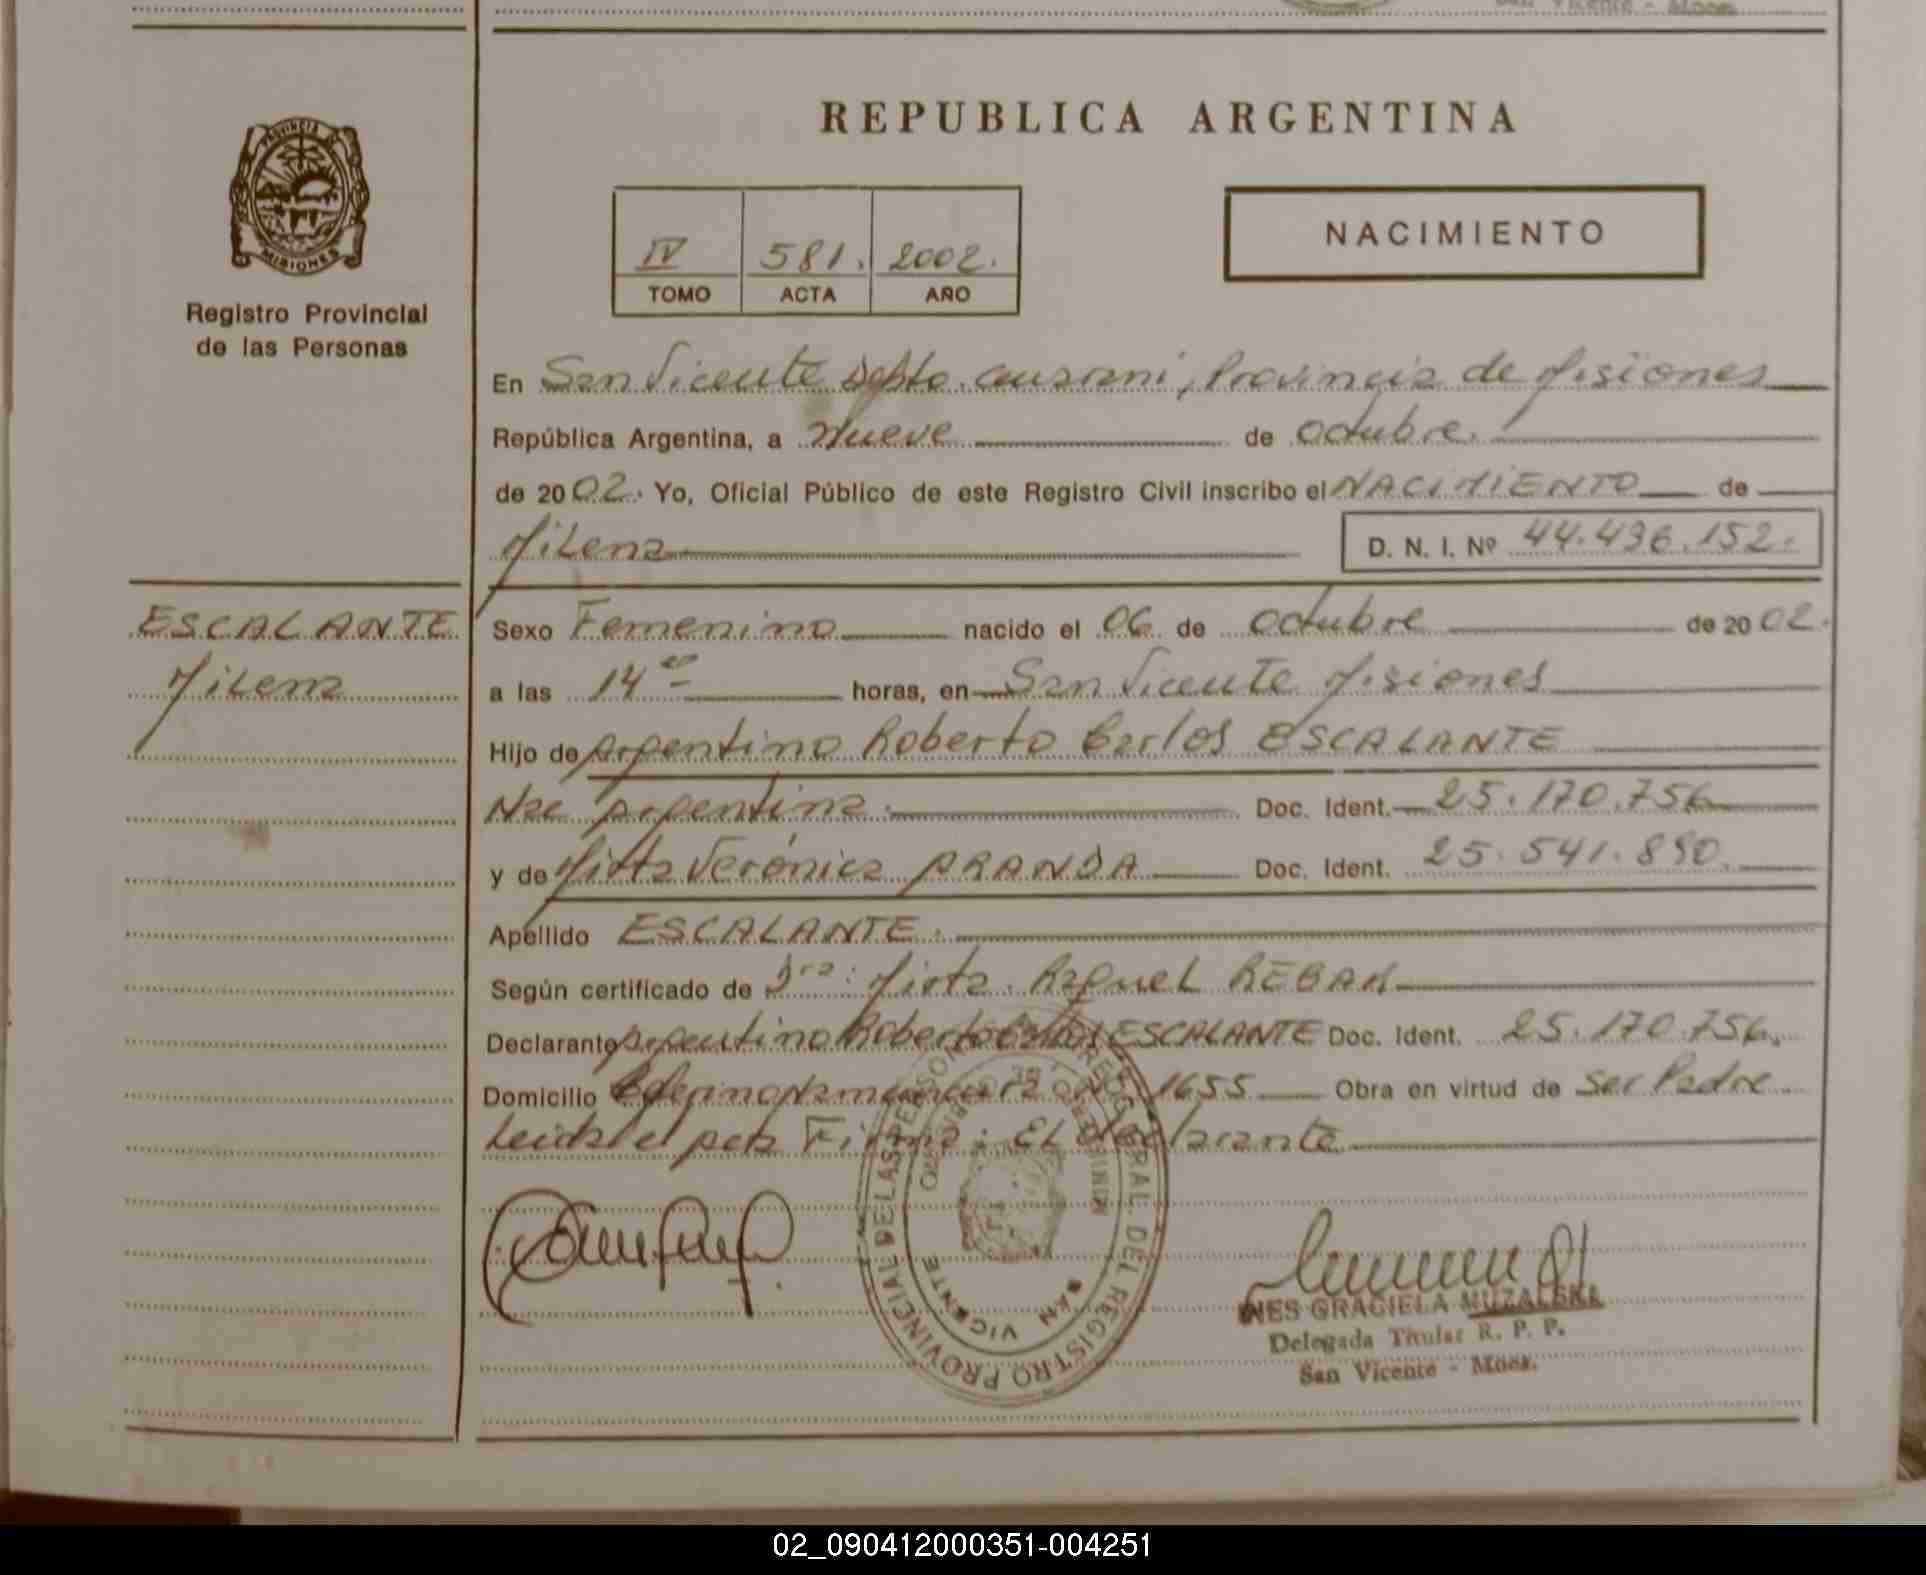 San Vicente - Mnes.
REPUBLICA ARGENTINA
PROVINCIA DE
MISIONES
Registro Provincial
de las Personas
IV 581. 2002.
TOMO ACTA AÑO
NACIMIENTO
En San Vicente Depto. Guaraní, Provincia de Misiones
República Argentina, a Nueve de octubre.
de 2002. Yo, Oficial Público de este Registro Civil inscribo el NACIMIENTO de
Milena D. N. I. Nº 44.496.152.
ESCALANTE
Milena
Sexo Femenino nacido el 06 de octubre de 2002.
a las 14 horas, en San Vicente Misiones
Hijo de Argentino Roberto Carlos ESCALANTE
Nac Argentina. Doc. Ident. 25.170.756
y de Mirta Verónica ARANDA Doc. Ident. 25.541.890
Apellido ESCALANTE.
Según certificado de Dra: Mirta Raquel REBAK
Declarante Argentino Roberto Carlos ESCALANTE Doc. Ident. 25.170.756.
Domicilio Ceferino Namuncurá 1655 Obra en virtud de Ser Padre
Leida el acta Firma: El declarante
REGISTRO PROVINCIAL DE LAS PERSONAS
SAN VICENTE
INES GRACIELA MUZALSKA
Delegada Titular R. P. P.
San Vicente - Mnes.
02_090412000351-004251